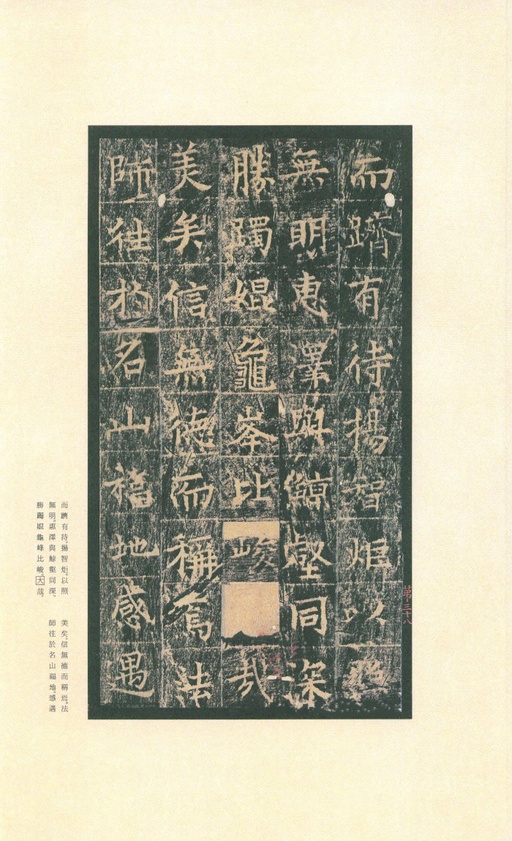 而躋有待楊智炬以照
無明惠澤與鯨壑同深
勝躅媲龜峯比峻哉
美矣信無德而稱焉法
師往於名山福地感遇
第三十八
而躋有待楊智炬以照
無明惠澤與鯨壑同深
勝躅媲龜峰比峻大哉
美矣信無德而稱焉法
師往於名山福地感遇